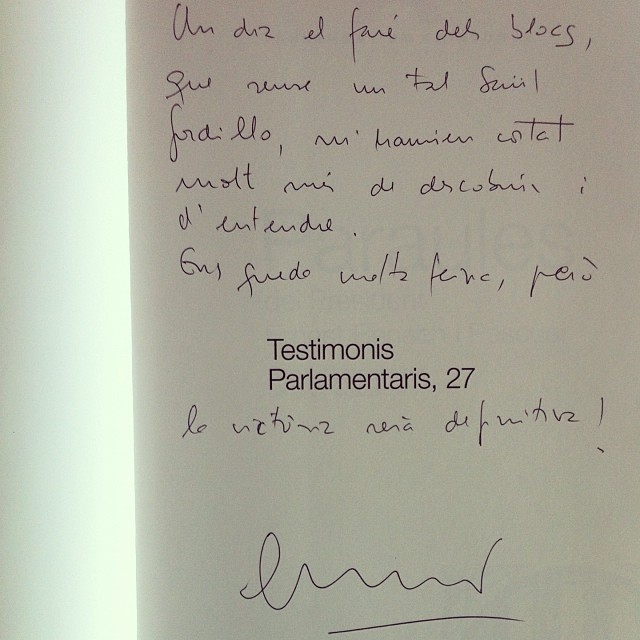 Un dia el faré dels blocs,
que sense un tal Saül
Gordillo, m'haurien costat
molt més de descobrir i
d'entendre.
Ens queda molta feina, però
Testimonis
Parlamentaris, 27
la victòria serà definitiva!